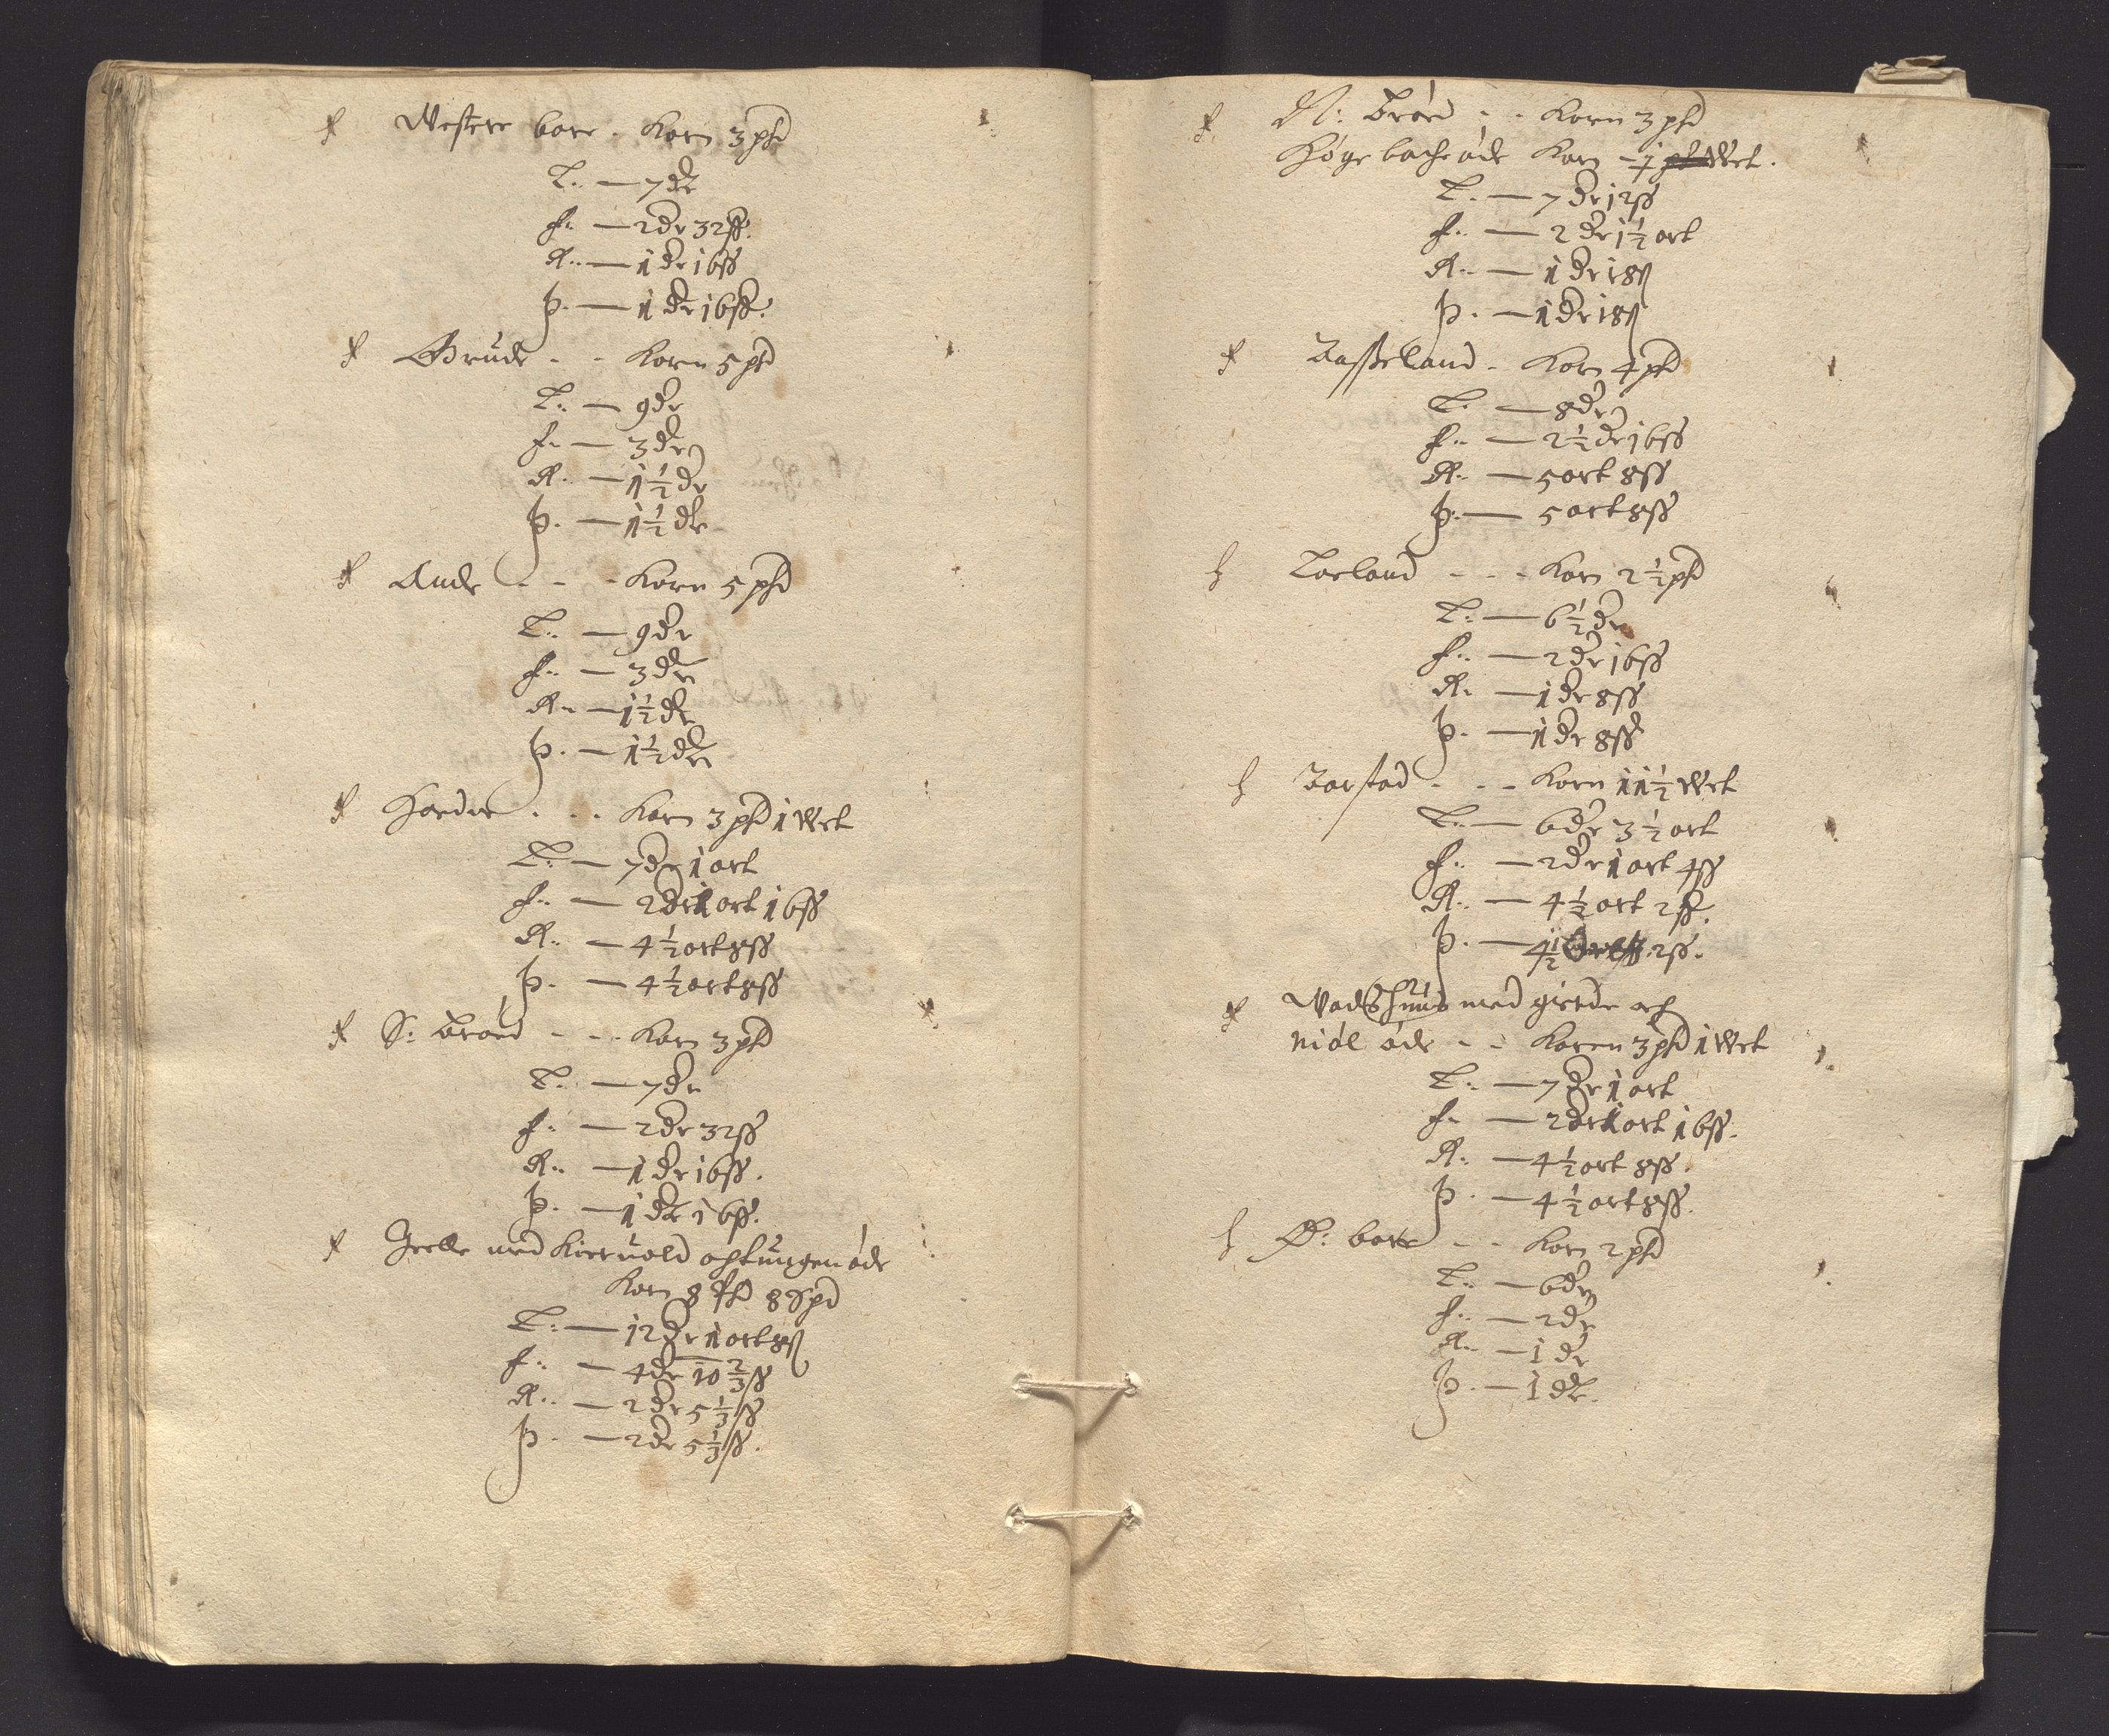 Westere bore - Korn 3 phd
T: — 7 dr
f: — 2 dr 32 ss.
R: — 1 dr 16 ss
þ. — 1 dr 16 ss.
Grude - - Korn 5 phd
T: — 9 dr
f: — 3 dr
R. — 1½ dr
þ. — 1½ dr
Aude - - - Korn 5 phd
T: — 9 dr
f: — 3 dr
R: — 1½ dr
þ. — 1½ dr
Hordve . . . Korn 3 phd 1 Wet
T: — 7 dr 1 ort
f: — 2 dr 1 ort 16 ss
R: — 4½ ort 8 ss
þ. — 4½ ort 8 ss
S: Brøed - - - Korn 3 phd
T. — 7 dr
f: — 2 dr 32 ss
R: — 1 dr 16 ss.
þ. — 1 dr 16 ss.
Grelle med Kieruold och tungen øde
Korn 8 phd 8 Spd
T: — 12 dr 1 ort 8 ß
f: — 4 dr 10⅔ ss
R: — 2 dr 5⅓ ss
þ. — 2 dr 5⅓ ss.
N: Brøed - - Korn 3 phd
Høge bache øde Korn - 1 Wet.
T. — 7 dr 12 ss
f: — 2 dr 1½ ort
R: — 1 dr 18 ß
þ. — 1 dr 18 ß
Tasseland - Korn 4 phd
T. — 8 dr
f: — 2½ dr 16 ss
R: — 5 ort 8 ss
þ. — 5 ort 8 ss
Torland - - - Korn 2½ phd
T: — 6½ dr
f: — 2 dr 16 ss
R: — 1 dr 8 ss
þ. — 1 dr 8 ss
Torstad - - - Korn 11½ Wet
T: — 6 dr 3½ ort
f: — 2 dr 1 ort 4 ss
R: — 4½ ort 2 ss.
þ. — 4½ ort 2 ss.
Wadshuus med gierde och
niöl øde - - Koren 3 phd 1 Wet
T: — 7 dr 1 ort
f: — 2 dr 1 ort 16 ss.
R: — 4½ ort 8 ss.
þ. — 4½ ort 8 ss.
Ø: bore - - Korn 2 phd
T: — 6 dr
f: — 2 dr
R: — 1 dr
þ. — 1 dr.